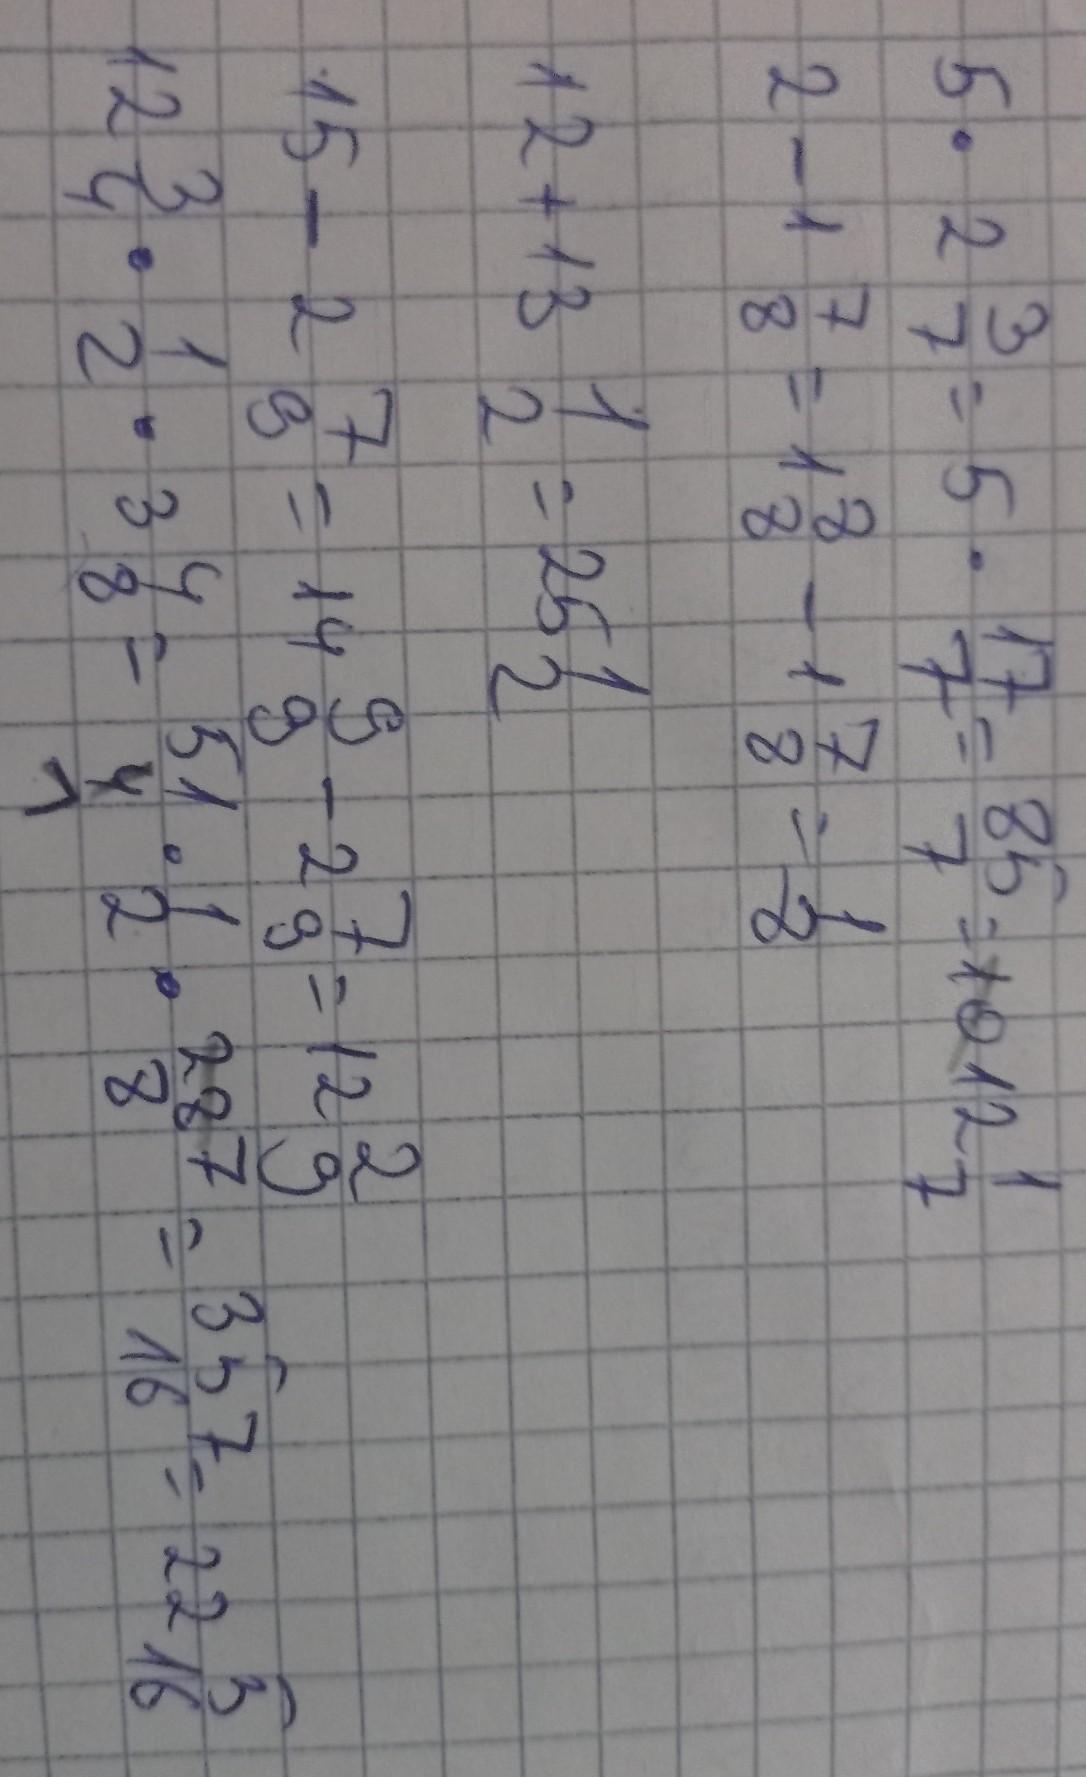 5 · 2 3/7 = 5 · 17/7 = 85/7 = 10 12 1/7
2 - 1 7/8 = 1 8/8 - 1 7/8 = 1/8
12 + 13 1/2 = 25 1/2
15 - 2 7/9 = 14 9/9 - 2 7/9 = 12 2/9
12 3/4 · 1/2 · 3 4/8 = 51/4 1 · 1/2 · 28 7/8 = 357/16 = 22 5/16